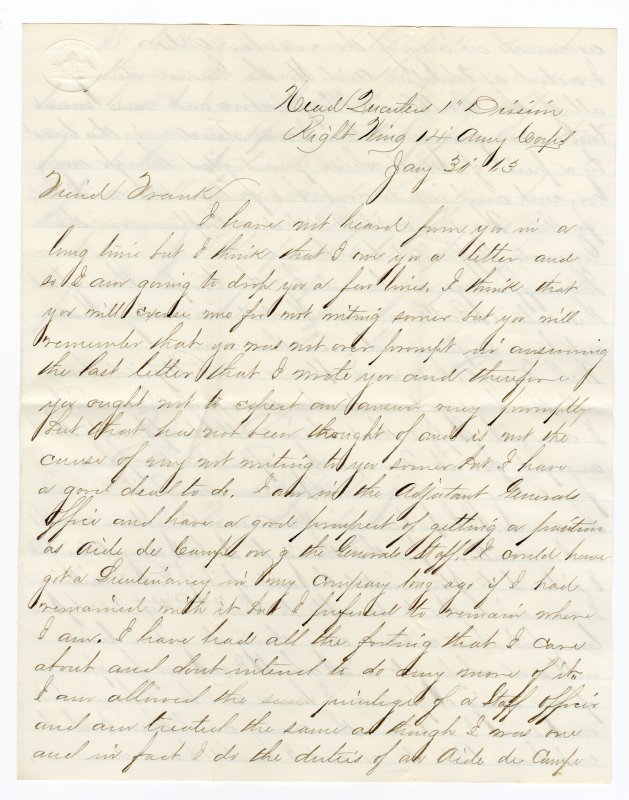 Head Quarters 1st Division
Right Wing 14" Army Corps
Jany 31st /63
Friend Frank
I have not heard from you in a
long time but I think that I owe you a letter and
so I am going to drop you a few lines. I think that
you will excuse me for not writing sooner but you will
remember that you was not over prompt in answering
the last letter that I wrote you and therefore
you ought not to expect an answer very promptly
But that has not been thought of and is not the
cause of my not writing to you sooner but I have
a good deal to do. I am in the Adjutant Generals
Office and have a good prospect of getting a position
as Aide de Camp on the Generals Staff. I could have
got a Lieutenancy in my Company long ago if I had
remained with it but I prefered to remain where
I am. I have had all the footing that I care
about and dont intend to do any more of it.
I am allowed the same privileges of a Staff Officer
and am treated the same as though I was one
and in fact I do the duties of an Aide de Camp